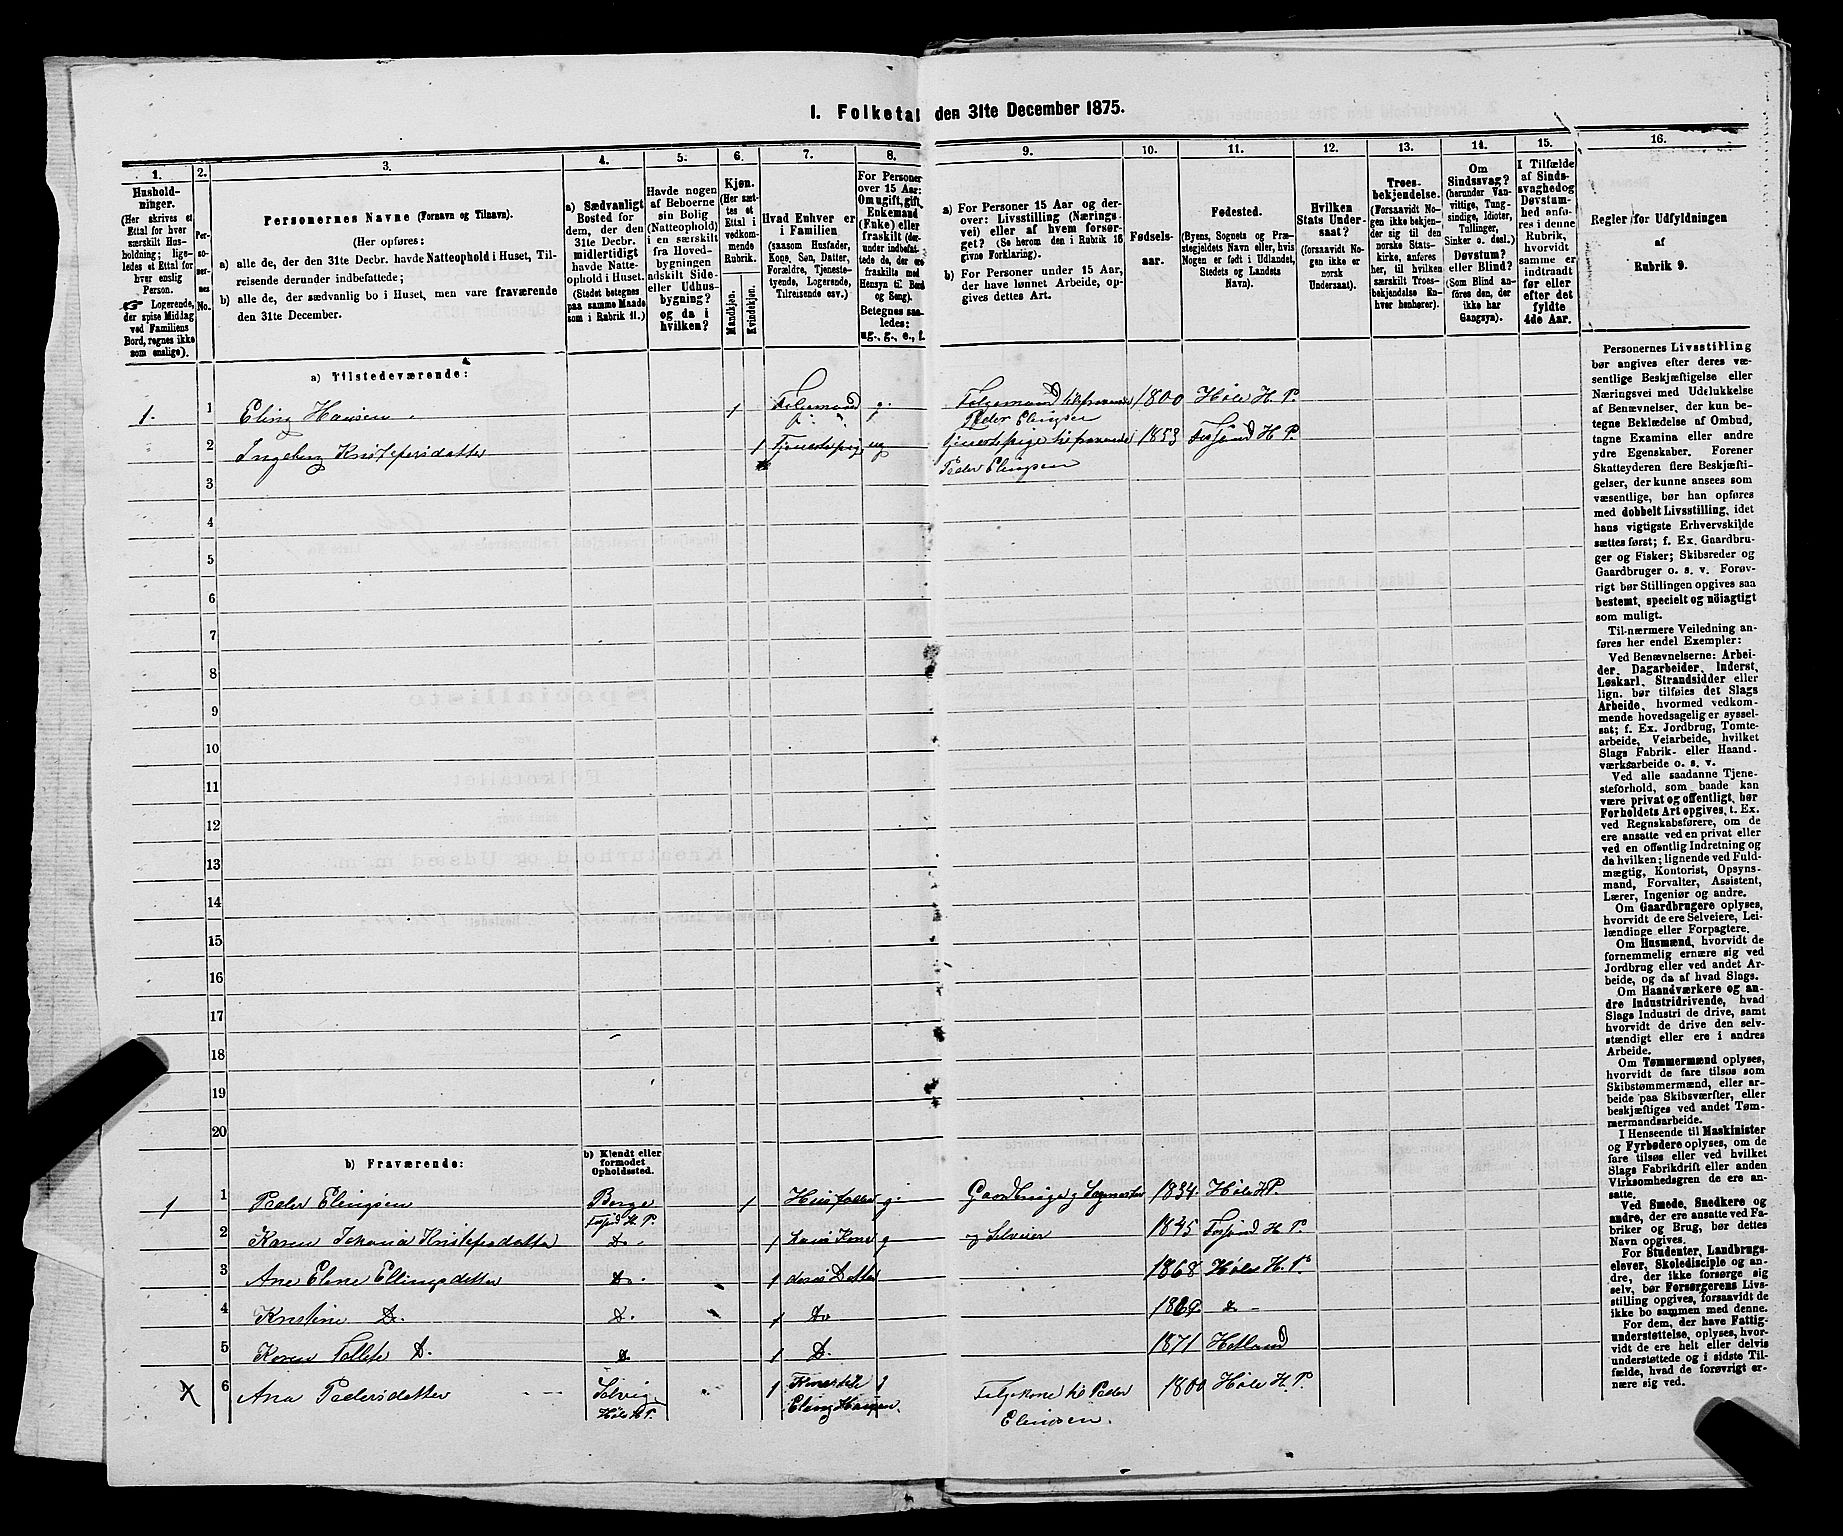 I. Folketal den 31te December 1875.
1.
Hushold-
ninger.
(Her skrives et
Ettal for hver
særskilt Hus-
holdning; lige-
ledes et Ettal for
hver enslig
Person.
☞ Logerende,
der spise Middag
ved Familiens
Bord, regnes ikke
som enslige).
2.
Per-
so-
ner-
nes
No.
3.
Personernes Navne (Fornavn og Tilnavn).
(Her opføres:
a) alle de, der den 31te Decbr. havde Natteophold i Huset, Til-
reisende derunder indbefattede;
b) alle de, der sædvanlig bo i Huset, men vare fraværende
den 31te December.
4.
a) Sædvanligt
Bosted for
dem, der den
31te Decbr.
midlertidigt
havde Natte-
ophold i Huset.
(Stedet betegnes
paa samme Maade
som i Rubrik 11.)
5.
Havde nogen
af Beboerne
sin Bolig
(Natteophold)
i en særskilt
fra Hoved-
bygningen
adskilt Side-
eller Udhus-
bygning?
og da i
hvilken?
6.
Kjøn.
(Her sæt-
tes et
Ettal i
vedkom-
mende
Rubrik.
Mandkjøn.
Kvindekjøn.
7.
Hvad Enhver er
i Familien
(saasom Husfader,
Kone, Søn, Datter,
Forældre, Tjeneste-
tyende, Logerende,
Tilreisende osv.)
8.
For Personer
over 15 Aar:
Om ugift, gift,
Enkemand
(Enke) eller
fraskilt (der-
under indbefat-
tede de, der ere
fraskilte med
Hensyn til Bord
og Seng).
Betegnes saa-
ledes:
ug., g., e., f.
9.
a) For Personer 15 Aar og der-
over: Livsstilling (Nærings-
vei) eller af hvem forsør-
get? (Se herom den i Rubrik 16
givne Forklaring).
b) For Personer under 15 Aar,
der have lønnet Arbeide, op-
gives dettes Art.
10.
Fødsels-
aar.
11.
Fødested.
(Byens, Sognets og Præ-
stegjeldets Navn eller, hvis
Nogen er født i Udlandet,
Stedets og Landets
Navn).
12.
Hvilken
Stats Under-
saat?
(forsaavidt No-
gen ikke er
norsk
Undersaat).
13.
Troes-
bekjendelse.
(Forsaavidt No-
gen ikke bekjen-
der sig til den
norske Stats-
kirke, anføres
her, til hvilken
særskilt Troes-
bekjendelse En-
hver henhører).
14.
Om
Sindssvag?
(herunder Van-
vittige, Tung-
sindige, Idioter,
Tullinger,
Sinker o. desl.)
Døvstum?
eller Blind?
(Som Blind an-
føres den, der
ikke har
Gangsyn).
15.
I Tilfælde
af Sinds-
svaghed og
Døvstum-
hed anfø-
res i denne
Rubrik,
hvorvidt
samme er
indtraadt
før eller
efter det
fyldte
4de Aar.
16.
Regler for Udfyldningen
af
Rubrik 9.
a) Tilstedeværende:
1. 1 Eling Hansen 1 Følgemand g. Følgemand til 1800 Höle H. P.
Peder Elingsen
2 Ingeborg Kristofersdatter 1 Tjenestepige ug Tjenestepige til 1853 Fosjand H P.
Peder Elingsen
3
4
5
6
7
8
9
10
11
12
13
14
15
16
17
18
19
20
b) Fraværende:
b) Kjendt eller
formodet
Opholdssted.
1 1 Peder Elingsen Berge 1 Husfader g. Gaardbruger og 1834 Höle H P.
Fosjand H. P.
2 Karen Johana Kristofersdatter Do. 1 hans Kone g og Selveier 1845 Fosjand H P.
3 Ane Eline Ellingsdatter Do. 1 deres Datter 1868 Höle H. P.
4 Kristine Do. Do. 1 Do 1869 do
5 Karen Do. Do 1 Do. 1871 Hetland
X 6 Ana Pedersdatter Selvig 1 Kone til g Følgekone til Peder 1800 Höle H. P.
Höle H P. Eling Hansen. Elingsen.
Personernes Livsstilling
bør angives efter deres væ-
sentlige Beskjæftigelse eller
Næringsvei med Udelukkelse
af Benævnelser, der kun be-
tegne Beklædelse af Ombud,
tagne Examina eller andre
ydre Egenskaber. Forener
Skatteyderen flere Beskjæfti-
gelser, der kunne ansees som
væsentlige, bør han opføres
med dobbelt Livsstilling, idet
hans vigtigste Erhvervskilde
sættes først; f. Ex. Gaardbru-
ger og Fisker; Skibsreder og
Gaardbruger o. s. v. Forøv-
rigt bør Stillingen opgives saa
bestemt, specielt og nöiagtigt
som muligt.
Til nærmere Veiledning an-
føres her endel Exempler:
Ved Benævnelserne: Arbei-
der, Dagarbeider, Inderst,
Løskarl, Strandsidder eller
lign. bør tilføies det Slags
Arbeide, hvormed vedkom-
mende hovedsagelig er syssel-
sat; f. Ex. Jordbrug, Tomte-
arbeide, Veiarbeide, hvilket
Slags Fabrik- eller Haand-
værksarbeide o. s. v.
Ved alle saadanne Tjene-
steforhold, som baade kan
være privat og offentligt, bør
Forholdets Art opgives, t. Ex.
ved Regnskabsførere, om de
ere ansatte ved en privat eller
ved en offentlig Indretning og
da hvilken; lignende ved Fuld-
mægtig, Kontorist, Opsyns-
mand, Forvalter, Assistent,
Lærer, Ingeniør og andre.
Om Gaardbrugere oplyses,
hvorvidt de ere Selveiere, Lei-
lændinge eller Forpagtere.
Om Husmænd, hvorvidt de
fornemmelig ernære sig ved
Jordbrug eller ved andet Ar-
beide, og da af hvad Slags.
Om Haandværkere og an-
dre Industridrivende, hvad
Slags Industri de drive, samt
hvorvidt de drive den selv-
stændigt eller ere i andres
Arbeide.
Om Tømmermænd oplyses,
hvorvidt de fare tilsøs som
Skibstømmermænd, eller ar-
beide paa Skibsværfter, eller
beskjæftiges ved andet Tøm-
mermandsarbeide.
I Henseende til Maskinister
og Fyrbødere oplyses, om de
fare tilsøs eller ved hvilket
Slags Fabrikdrift eller anden
Virksomhedsgren de ere an-
satte.
Ved Smede, Snedkere og
andre, der ere ansatte ved Fa-
briker og Brug, bør dettes
Navn opgives.
For Studenter, Landbrugs-
elever, Skoledisciple og an-
dre, der ikke forsørge sig
selv, bør Forsørgerens Livs-
stilling opgives, forsaavidt de
ikke bo sammen med denne.
For dem, der have Fattig-
understøttelse, oplyses, hvor-
vidt de ere helt eller delvis
understøttede og i sidste Til-
fælde, hvad de forøvrigt er-
nære sig ved.